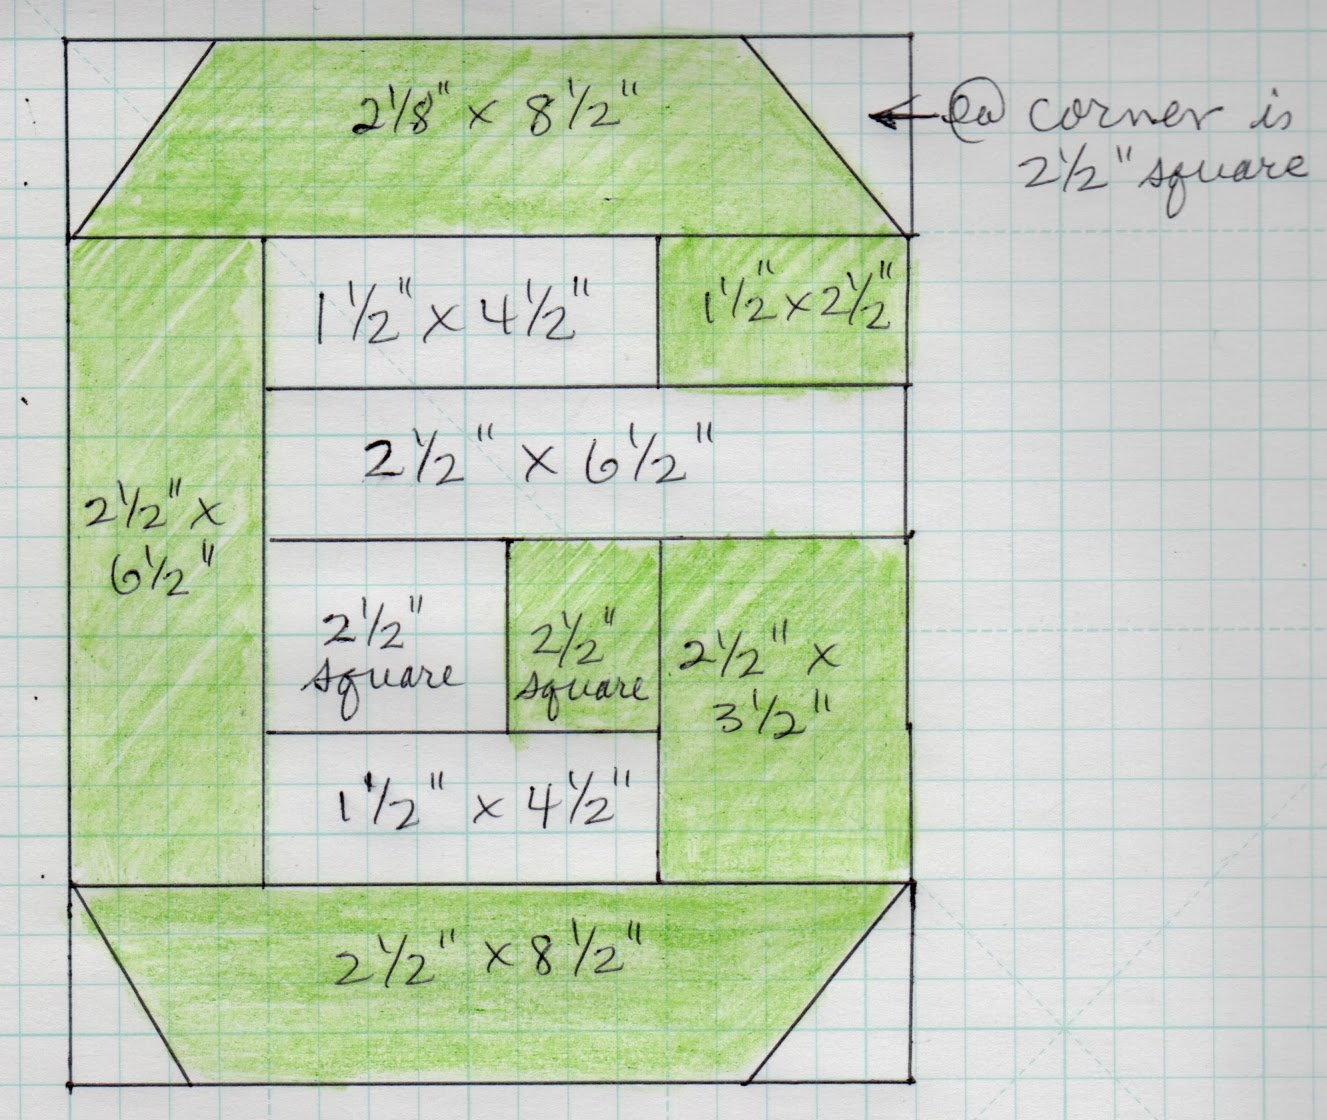 2 1/8" x 8 1/2"
← @ corner is
2 1/2" square
1 1/2" x 4 1/2"
1 1/2" x 2 1/2"
2 1/2" x 6 1/2"
2 1/2" x
6 1/2"
2 1/2"
square
2 1/2"
square
2 1/2" x
3 1/2"
1 1/2" x 4 1/2"
2 1/2" x 8 1/2"